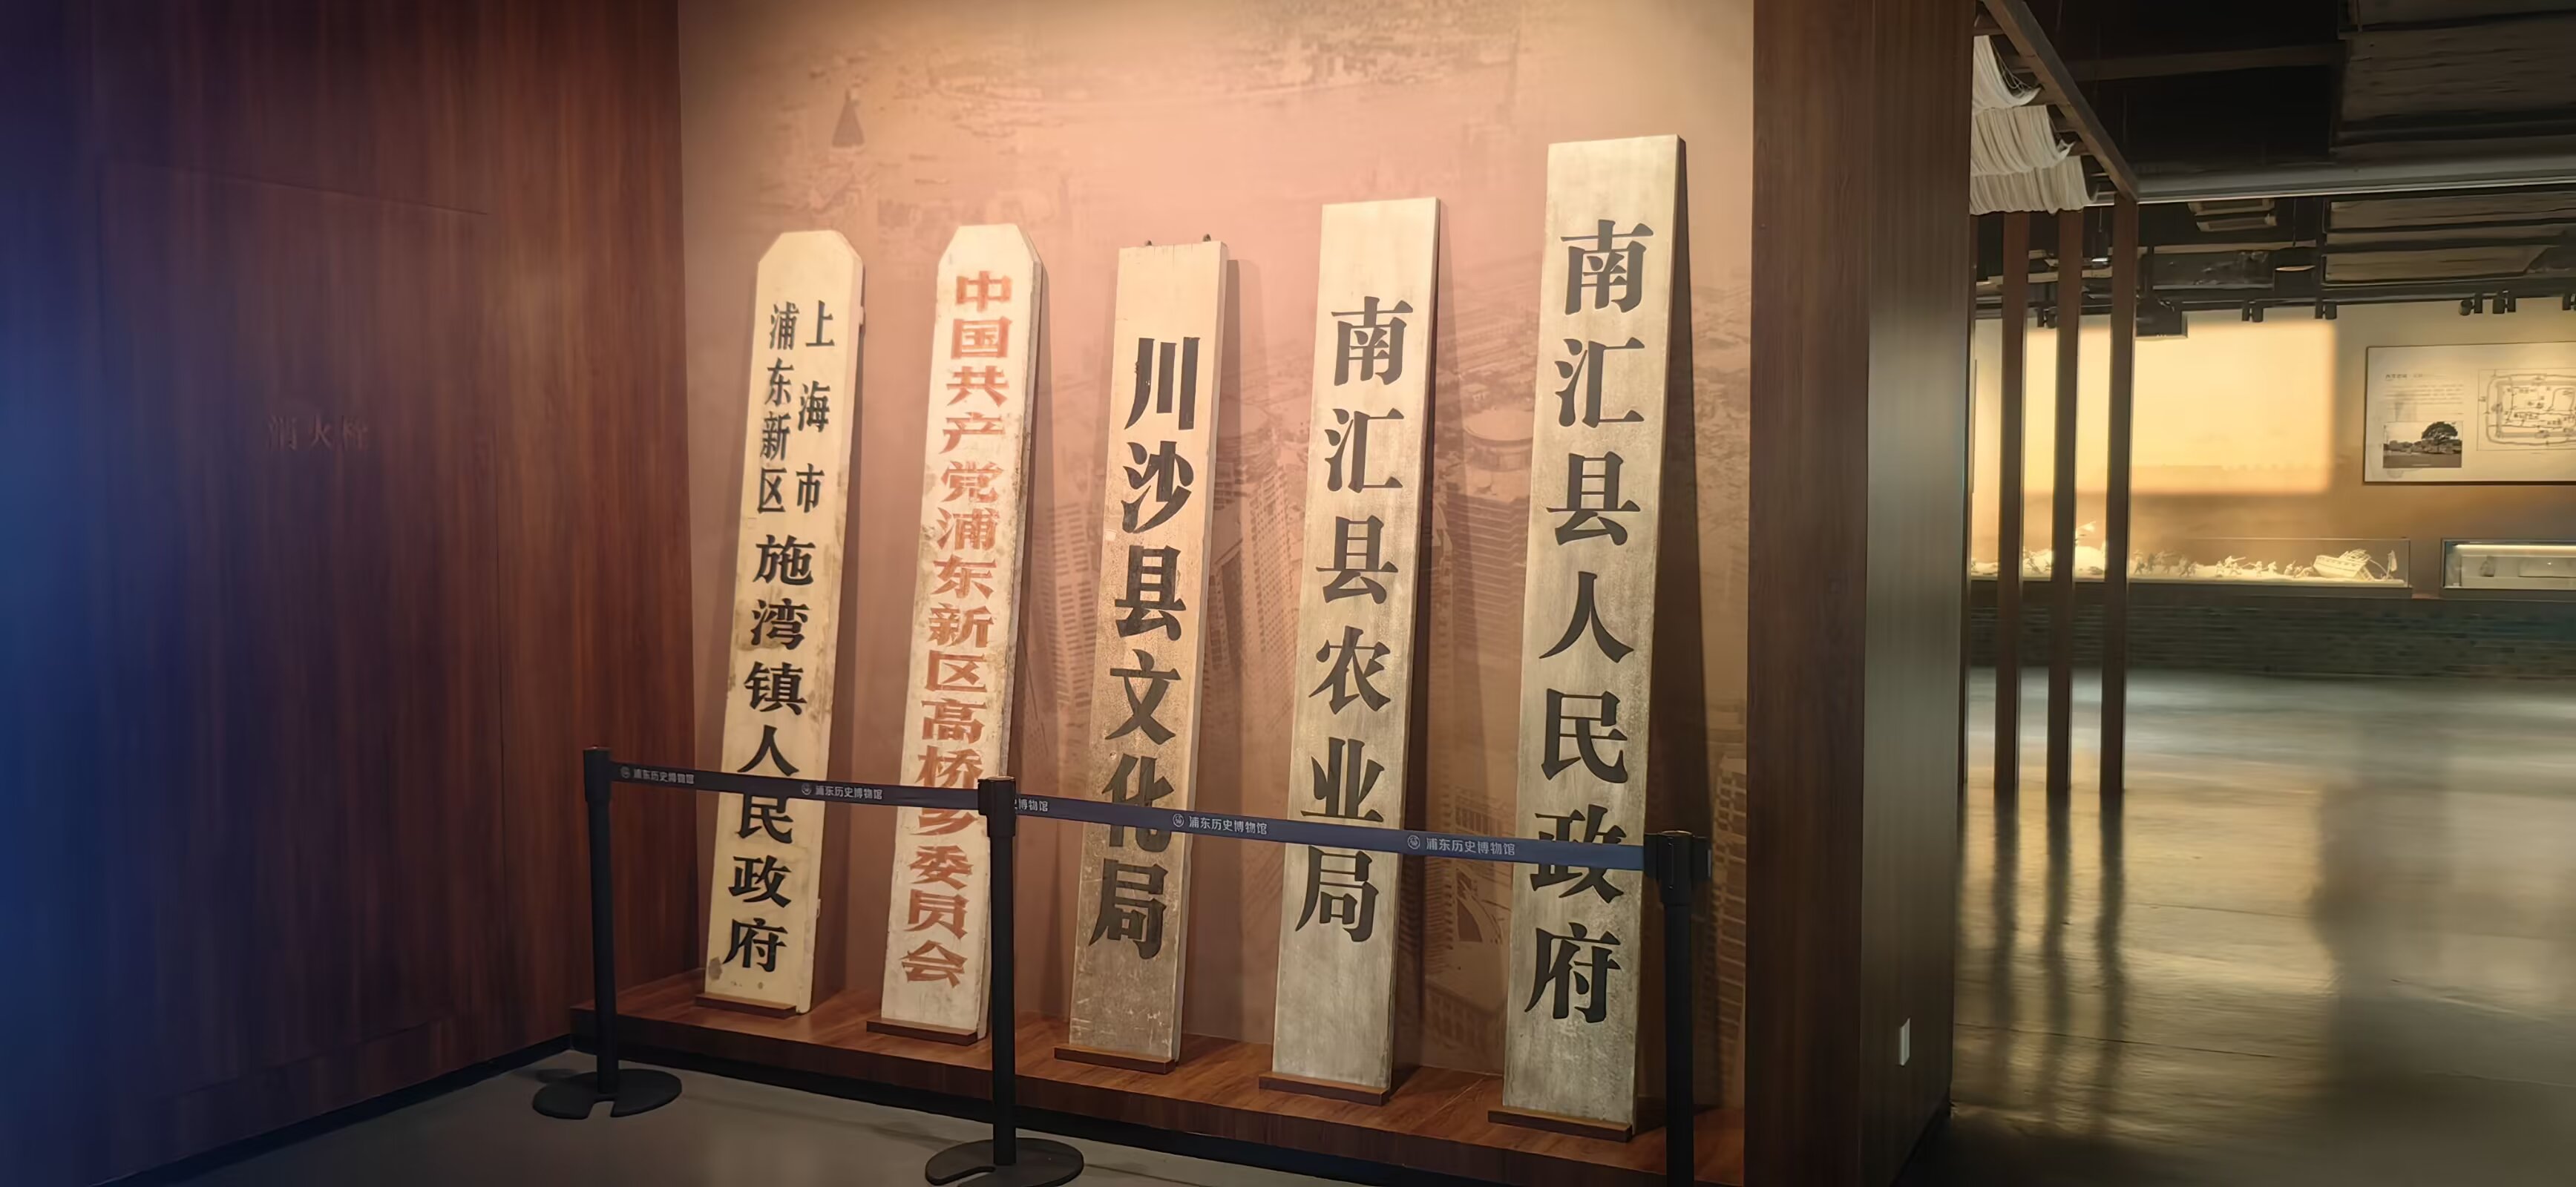 消火栓
上海市
浦东新区
施湾镇人民政府
中国共产党浦东新区高桥乡委员会
川沙县文化局
南汇县农业局
南汇县人民政府
浦东历史博物馆
浦东历史博物馆
史博物馆
浦东历史博物馆
浦东历史博物馆